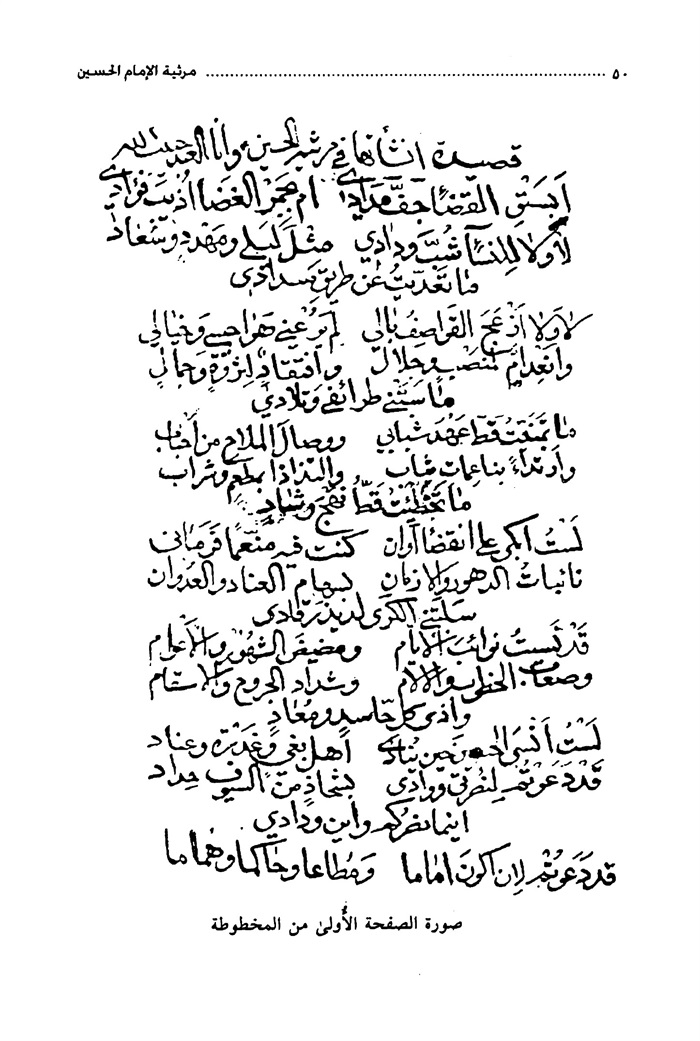 ٥٠ ........................................ مرثية الإمام الحسين
قصيدة انشأتها في مرثية الحسين وأنا العبد حبيب الله
القضا جف مدادي ام بجمر الغضا اذيب فؤادي
لا ولا للنسآء شب ودادي مثل ليلى ومهدد وسعاد
ما تعديت عن طريق سدادي
لا ولا ازعج القواصف بالي لم يرعني هواجسي وخيالي
وانعدام لمنصب وجلال وافتقاد لثروة وجمال
ما سبتني طرائفي وتلادي
ما تمنيت قط عهد شبابي ووصال الملاح من احباب
وارتداء بناعمات ثياب والتذاذا بمطعم وشراب
ما تخطيت قط نهج رشاد
لست ابكي على انقضا آوان كنت فيه منعما فرماني
نائبات الدهور والازمان بسهام العناد والعدوان
سلبتني الكرى لذيذ رقادي
قد نسيت نوائب الأيام ومضيض الشهور والأعوام
وصعاب الخطوب والآلام وشداد الجروح والاسقام
واذى كل حاسد ومعاد
لست أنسى الحسين حين ينادي أهل بغي وغدرة وعناد
قد دعوتم لنصرتي وودادي بشحاذ من السيوف حداد
اينما نصركم واين ودادي
قد دعوتم لان اكون اماما ومطاعا وحاكما وهماما
صورة الصفحة الأُولىٰ من المخطوطة